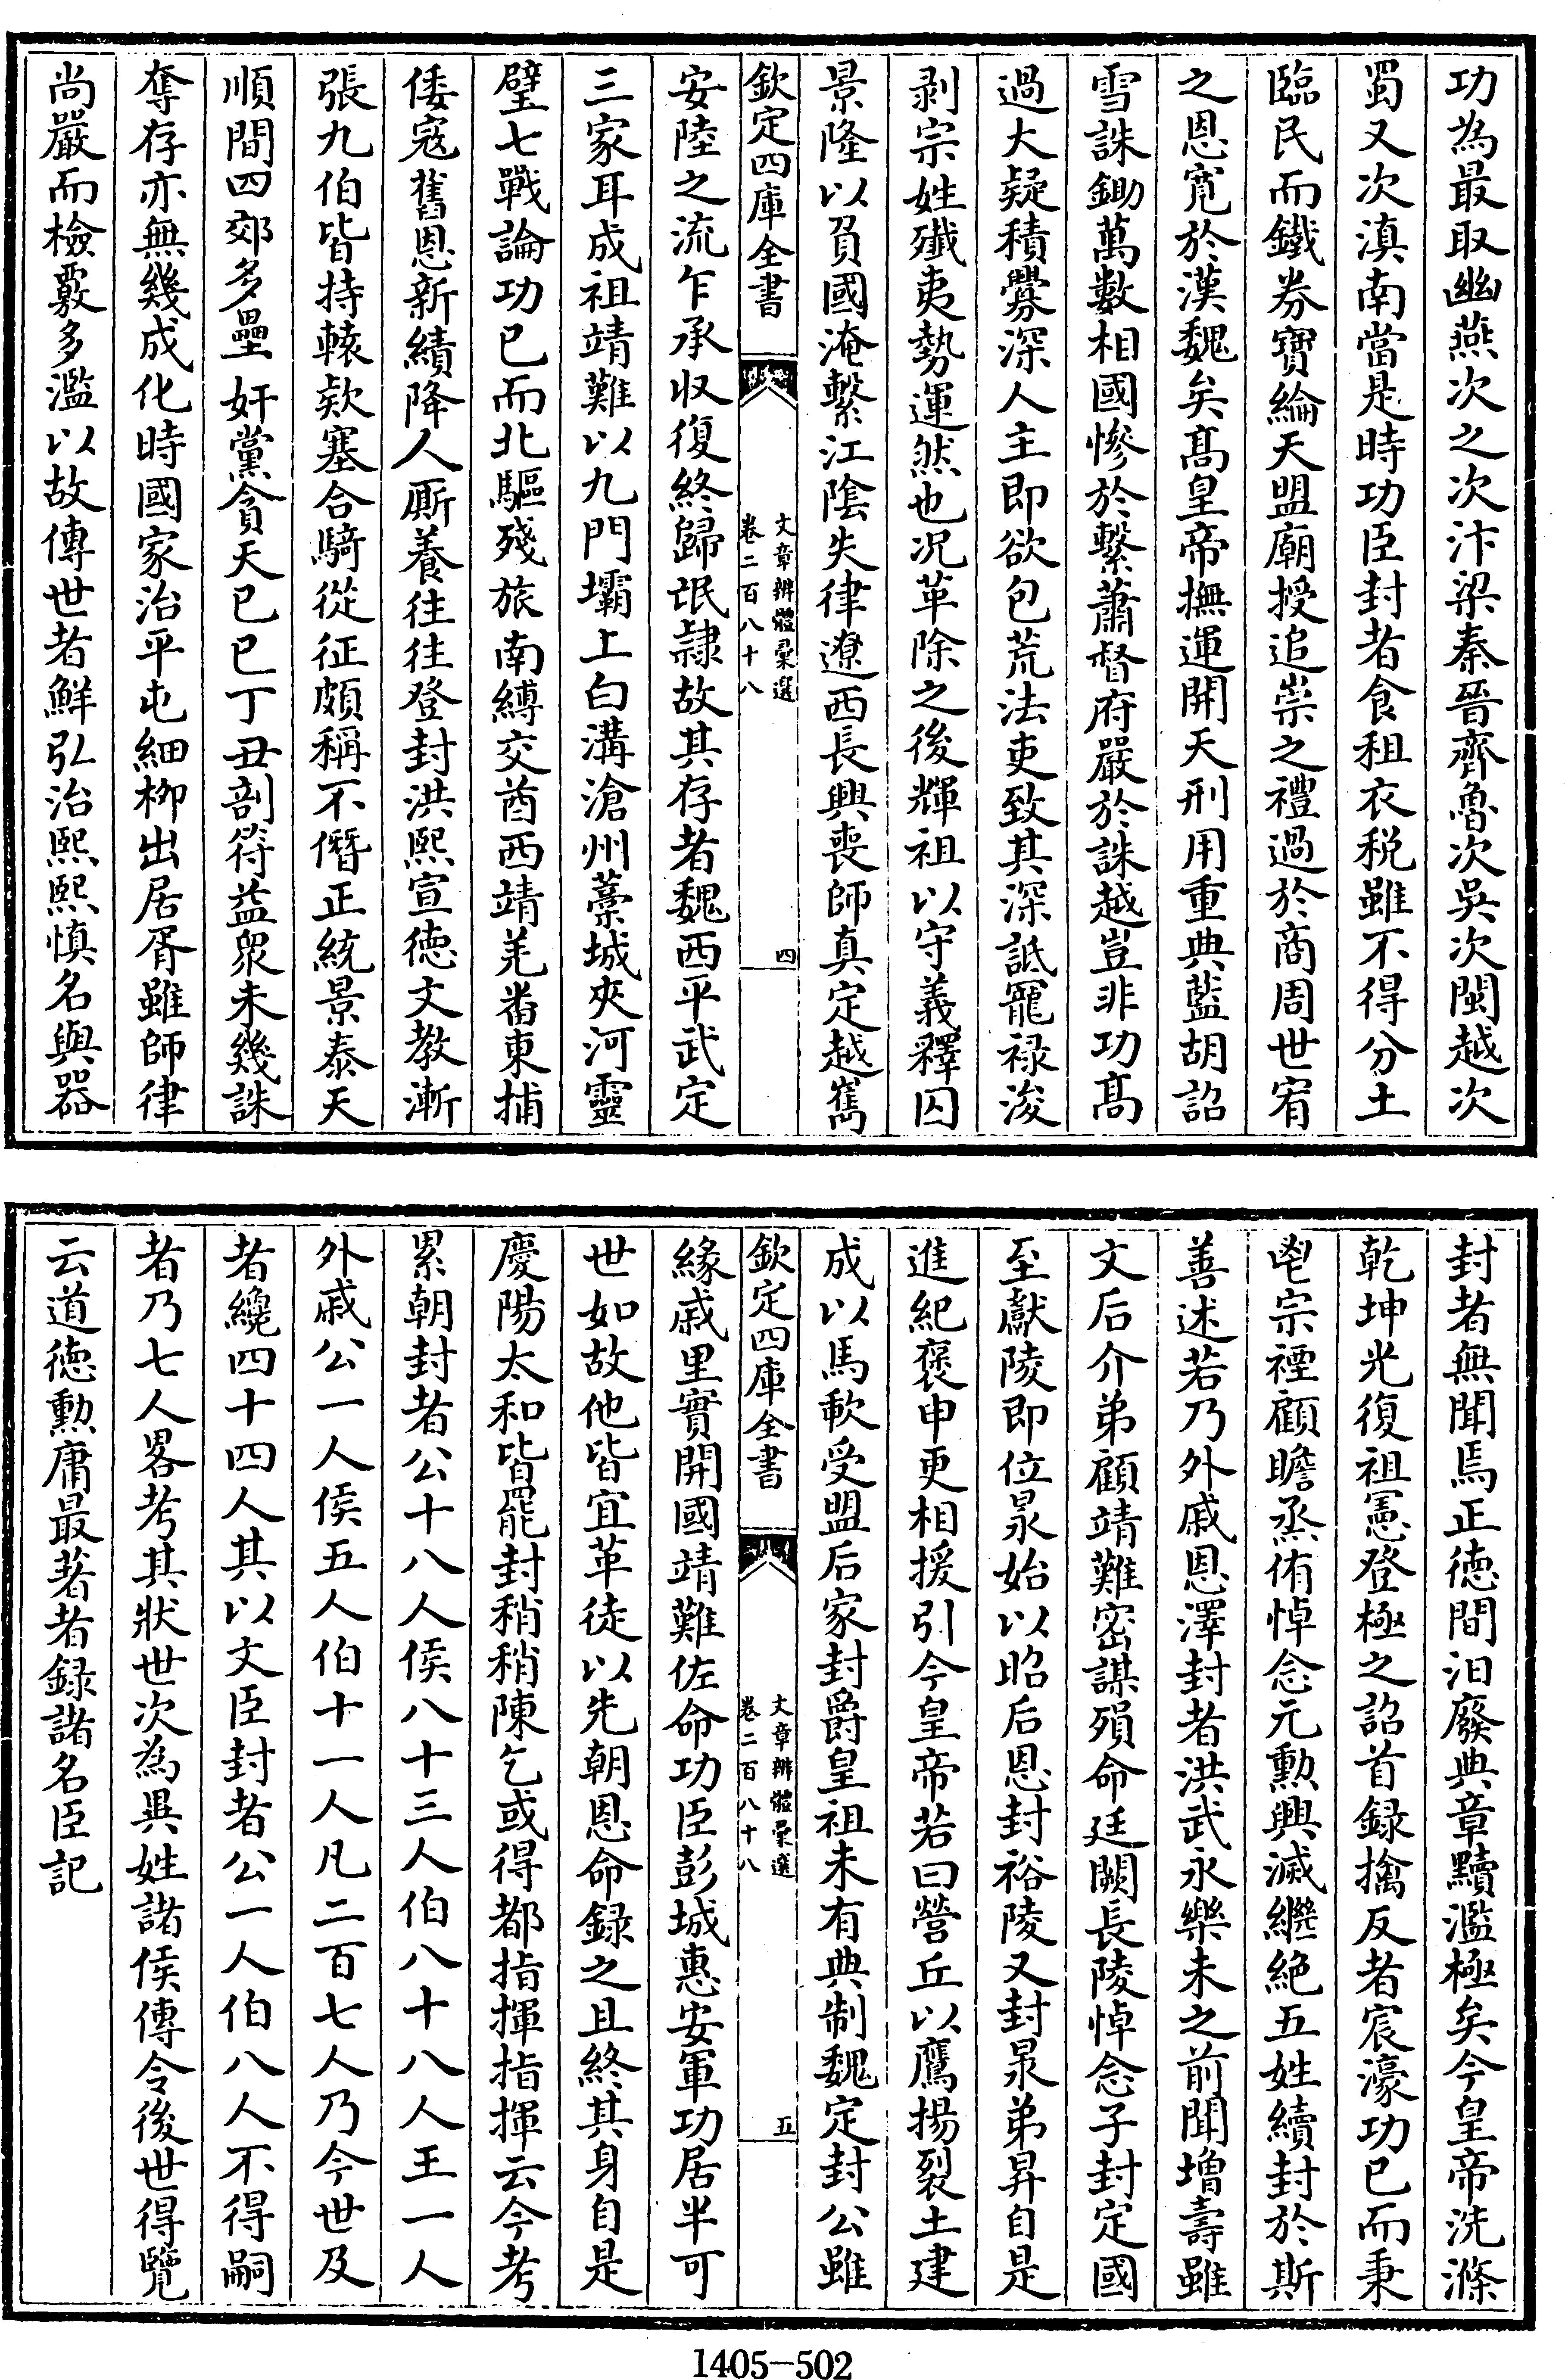 功為最取幽燕次之次汴梁秦晉齊魯次吳次閩越次
蜀又次滇南當是時功臣封者食租衣稅雖不得分土
臨民而鐵券寶綸天盟廟授追崇之禮過於商周世宥
之恩寬於漢魏矣髙皇帝撫運開天刑用重典藍胡詔
雪誅鋤萬數相國慘於繫蕭督府嚴於誅越豈非功髙
過大疑積釁深人主即欲包荒法吏致其深詆寵祿浚
剥宗姓殲夷勢運然也况革除之後輝祖以守義釋囚
景隆以負國淹繫江陰失律遼西長興喪師真定越嶲
欽定四庫全書
文章辨體彚選
卷二百八十八
四
安陸之流乍承収復終歸氓隷故其存者魏西平武定
三家耳成祖靖難以九門壩上白溝滄州藁城夾河靈
璧七戰論功已而北驅殘旅南縛交酋西靖羌番東捕
倭宼舊恩新績降人厮養往往登封洪熙宣徳文教漸
張九伯皆持轅欵塞合騎從征頗稱不僭正統景泰天
順間四郊多壘奸黨貪天已巳丁丑剖符益衆未幾誅
奪存亦無幾成化時國家治平屯細柳出居胥雖師律
尚嚴而檢覈多濫以故傳世者鮮弘治熙熙慎名與器
封者無聞焉正徳間汨廢典章黷濫極矣今皇帝洗滌
乾坤光復祖憲登極之詔首録擒反者宸濠功已而秉
鬯宗禋顧瞻烝侑悼念元勲興滅繼絶五姓續封於斯
善述若乃外戚恩澤封者洪武永樂未之前聞增壽雖
文后介弟顧靖難密謀殞命廷闕長陵悼念子封定國
至獻陵即位㫤始以昭后恩封裕陵又封㫤弟昇自是
進紀褒申更相援引今皇帝若曰營丘以鷹揚裂土建
成以馬軟受盟后家封爵皇祖未有典制魏定封公雖
欽定四庫全書
文章辨體彚選
卷二百八十八
五
緣戚里實開國靖難佐命功臣彭城惠安軍功居半可
世如故他皆宜革徒以先朝恩命録之且終其身自是
慶陽太和皆罷封稍稍陳乞或得都指揮指揮云今考
累朝封者公十八人侯八十三人伯八十八人王一人
外戚公一人侯五人伯十一人凡二百七人乃今世及
者纔四十四人其以文臣封者公一人伯八人不得嗣
者乃七人畧考其狀世次為異姓諸侯傳令後世得覽
云道徳勲庸最著者録諸名臣記
1405-502